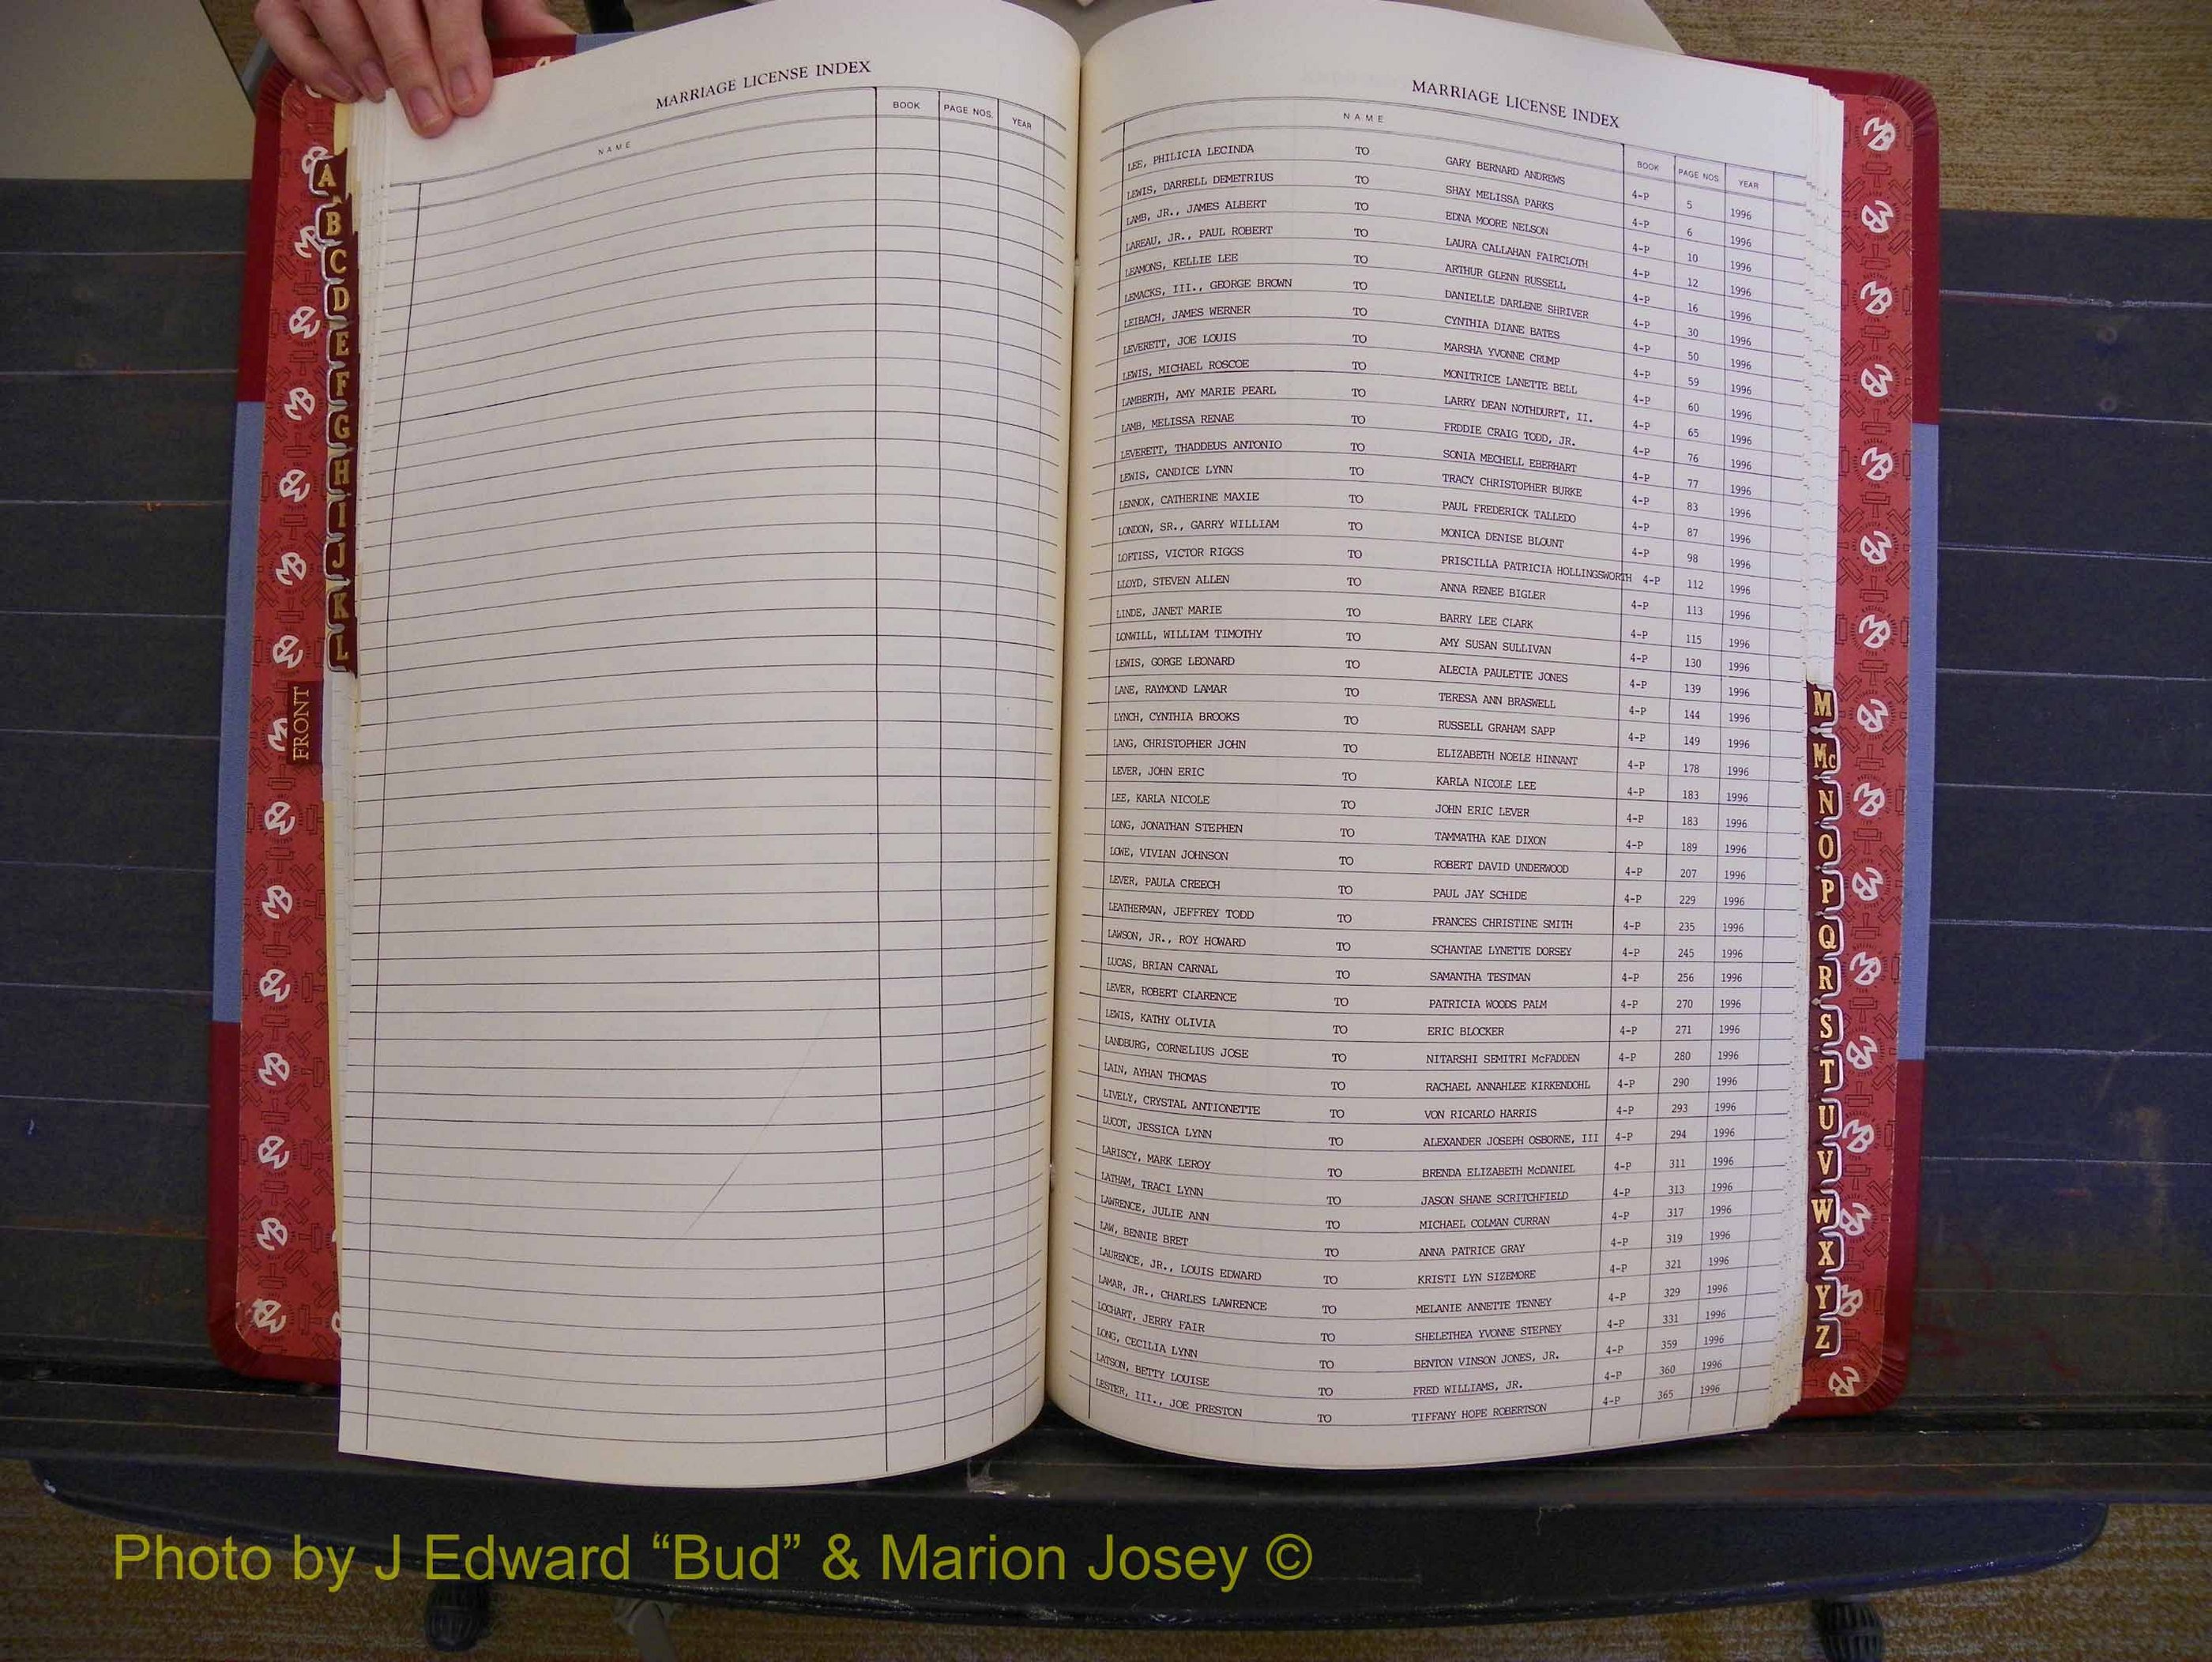 MARRIAGE LICENSE INDEX
NAME BOOK PAGE NOS. YEAR
A
B
C
D
E
F
G
H
I
J
K
L
FRONT
MARRIAGE LICENSE INDEX
NAME BOOK PAGE NOS. YEAR
LEE, PHILICIA LECINDA TO GARY BERNARD ANDREWS 4-P 5 1996
LEWIS, DARRELL DEMETRIUS TO SHAY MELISSA PARKS 4-P 6 1996
LAMB, JR., JAMES ALBERT TO EDNA MOORE NELSON 4-P 10 1996
LAREAU, JR., PAUL ROBERT TO LAURA CALLAHAN FAIRCLOTH 4-P 12 1996
LEAMONS, KELLIE LEE TO ARTHUR GLENN RUSSELL 4-P 16 1996
LEMACKS, III., GEORGE BROWN TO DANIELLE DARLENE SHRIVER 4-P 30 1996
LEIBACH, JAMES WERNER TO CYNTHIA DIANE BATES 4-P 50 1996
LEVERETT, JOE LOUIS TO MARSHA YVONNE CRUMP 4-P 59 1996
LEWIS, MICHAEL ROSCOE TO MONITRICE LANETTE BELL 4-P 60 1996
LAMBERTH, AMY MARIE PEARL TO LARRY DEAN NOTHDURFT, II. 4-P 65 1996
LAMB, MELISSA RENAE TO FRDDIE CRAIG TODD, JR. 4-P 76 1996
LEVERETT, THADDEUS ANTONIO TO SONIA MECHELL EBERHART 4-P 77 1996
LEWIS, CANDICE LYNN TO TRACY CHRISTOPHER BURKE 4-P 83 1996
LENNOX, CATHERINE MAXIE TO PAUL FREDERICK TALLEDO 4-P 87 1996
LONDON, SR., GARRY WILLIAM TO MONICA DENISE BLOUNT 4-P 98 1996
LOFTISS, VICTOR RIGGS TO PRISCILLA PATRICIA HOLLINGSWORTH 4-P 112 1996
LLOYD, STEVEN ALLEN TO ANNA RENEE BIGLER 4-P 113 1996
LINDE, JANET MARIE TO BARRY LEE CLARK 4-P 115 1996
LONWILL, WILLIAM TIMOTHY TO AMY SUSAN SULLIVAN 4-P 130 1996
LEWIS, GORGE LEONARD TO ALECIA PAULETTE JONES 4-P 139 1996
LANE, RAYMOND LAMAR TO TERESA ANN BRASWELL 4-P 144 1996
LYNCH, CYNTHIA BROOKS TO RUSSELL GRAHAM SAPP 4-P 149 1996
LANG, CHRISTOPHER JOHN TO ELIZABETH NOELE HINNANT 4-P 178 1996
LEVER, JOHN ERIC TO KARLA NICOLE LEE 4-P 183 1996
LEE, KARLA NICOLE TO JOHN ERIC LEVER 4-P 183 1996
LONG, JONATHAN STEPHEN TO TAMMATHA KAE DIXON 4-P 189 1996
LOWE, VIVIAN JOHNSON TO ROBERT DAVID UNDERWOOD 4-P 207 1996
LEVER, PAULA CREECH TO PAUL JAY SCHIDE 4-P 229 1996
LEATHERMAN, JEFFREY TODD TO FRANCES CHRISTINE SMITH 4-P 235 1996
LAWSON, JR., ROY HOWARD TO SCHANTAE LYNETTE DORSEY 4-P 245 1996
LUCAS, BRIAN CARNAL TO SAMANTHA TESTMAN 4-P 256 1996
LEVER, ROBERT CLARENCE TO PATRICIA WOODS PALM 4-P 270 1996
LEWIS, KATHY OLIVIA TO ERIC BLOCKER 4-P 271 1996
LANDBURG, CORNELIUS JOSE TO NITARSHI SEMITRI McFADDEN 4-P 280 1996
LAIN, AYHAN THOMAS TO RACHAEL ANNAHLEE KIRKENDOHL 4-P 290 1996
LIVELY, CRYSTAL ANTIONETTE TO VON RICARLO HARRIS 4-P 293 1996
LUCOT, JESSICA LYNN TO ALEXANDER JOSEPH OSBORNE, III 4-P 294 1996
LARISCY, MARK LEROY TO BRENDA ELIZABETH McDANIEL 4-P 311 1996
LATHAM, TRACI LYNN TO JASON SHANE SCRITCHFIELD 4-P 313 1996
LAWRENCE, JULIE ANN TO MICHAEL COLMAN CURRAN 4-P 317 1996
LAW, BENNIE BRET TO ANNA PATRICE GRAY 4-P 319 1996
LAURENCE, JR., LOUIS EDWARD TO KRISTI LYN SIZEMORE 4-P 321 1996
LAMAR, JR., CHARLES LAWRENCE TO MELANIE ANNETTE TENNEY 4-P 329 1996
LOCHART, JERRY FAIR TO SHELETHEA YVONNE STEPNEY 4-P 331 1996
LONG, CECILIA LYNN TO BENTON VINSON JONES, JR. 4-P 359 1996
LATSON, BETTY LOUISE TO FRED WILLIAMS, JR. 4-P 360 1996
LESTER, III., JOE PRESTON TO TIFFANY HOPE ROBERTSON 4-P 365 1996
M
Mc
N
O
P
Q
R
S
T
U
V
W
X
Y
Z
Photo by J Edward “Bud” & Marion Josey ©